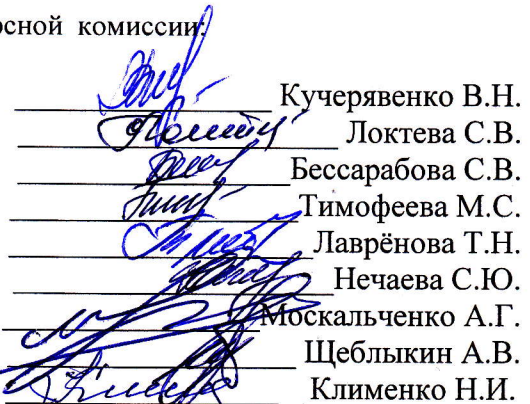 осной комиссии:
Кучерявенко В.Н.
Локтева С.В.
Бессарабова С.В.
Тимофеева М.С.
Лаврёнова Т.Н.
Нечаева С.Ю.
Москальченко А.Г.
Щеблыкин А.В.
Клименко Н.И.